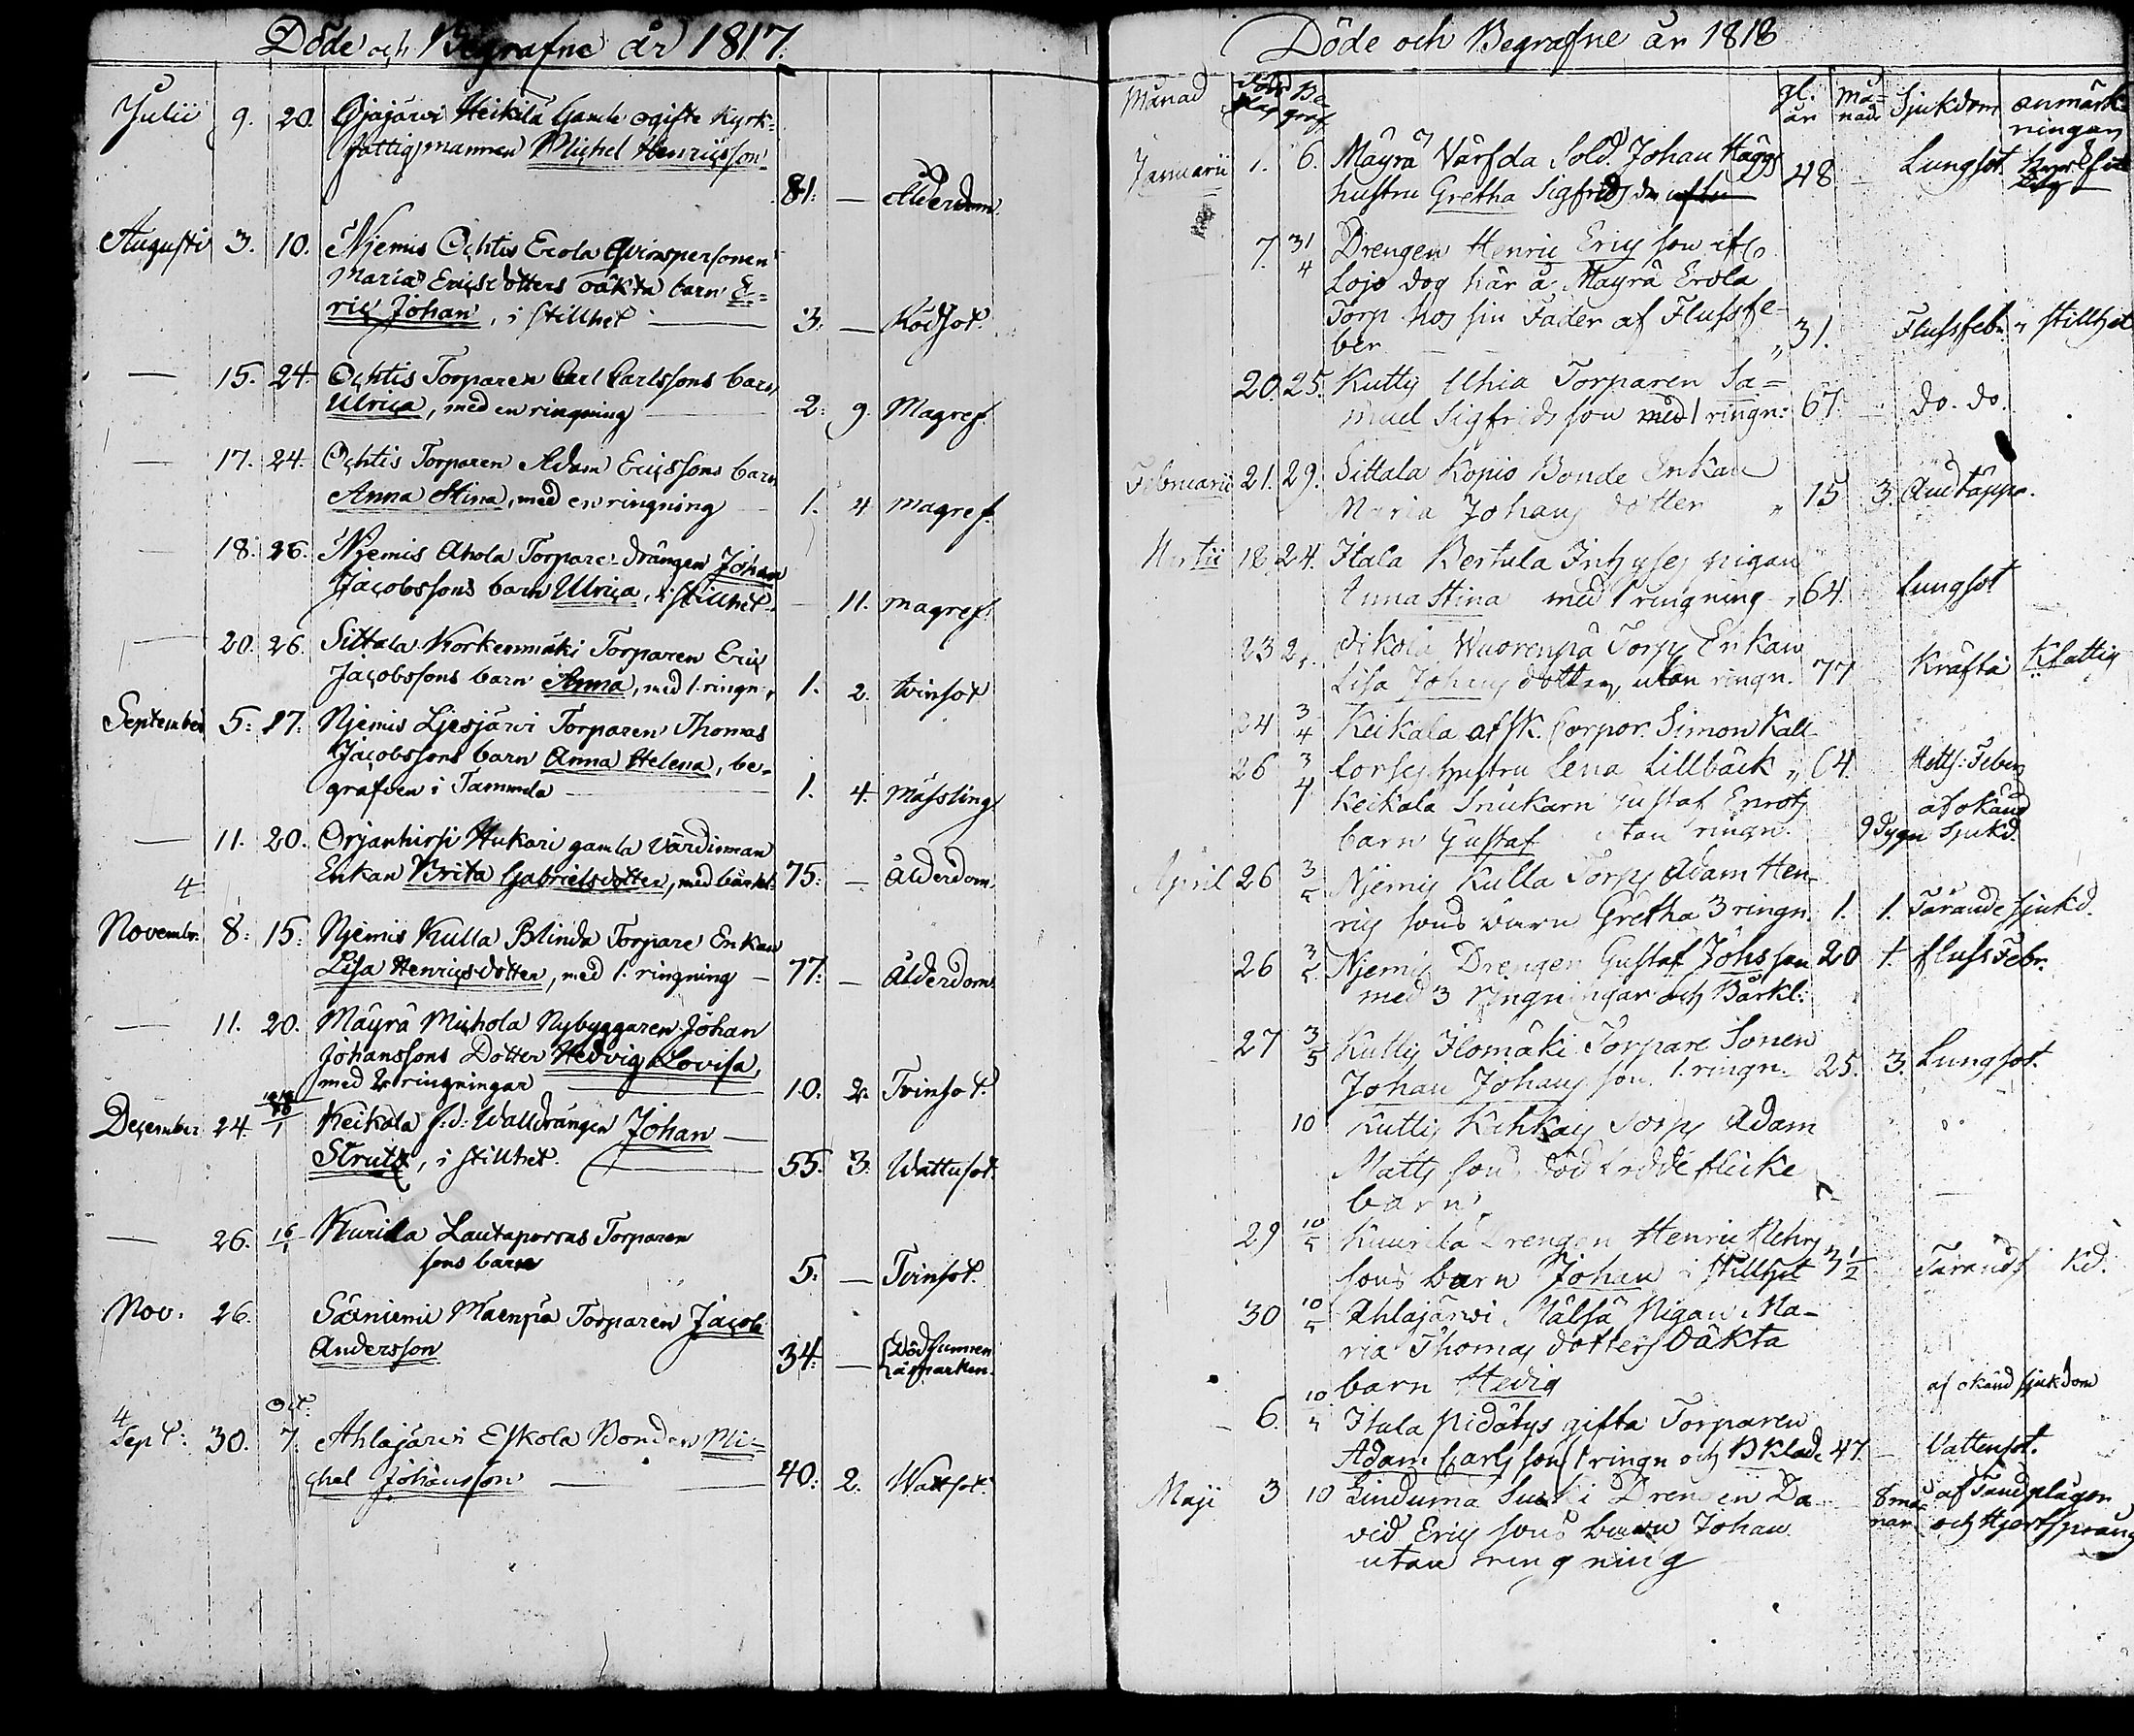 Döde och Begrafne år 1817.
Julii 9. 20. Ojajärvi Heikilä Gamle ogifte Kyrk-
fattigmannen Michel Henricsson
81. — Ålderdom
Augusti 3. 10. Njemis Ochtis Erola Qvinspersonen
Maria Ericsdotters oäkta barn E-
ric Johan, i stillhet 3. — Rödsot.
— 15. 24. Ochtis Torparen Carl Carlssons barn
Ulrica, med en ringning 2. 9. Magref.
— 17. 24. Ochtis Torparen Adam Ericssons barn
Anna Stina, med en ringning 1. 4. magref.
— 18. 26. Njemis Ahola Torpare drängen Johan
Jacobssons barn Ulrica, i stillhet. — 11. magref.
— 20. 26. Sittala Korkenmäki Torparen Eric
Jacobssons barn Anna, med 1. ringn. 1. 2. tvinsot
September 5. 17. Njemis Ljesjärvi Torparen Thomas
Jacobssons barn Anna Helena, be-
grafven i Tammela 1. 4. Mässling
— 11. 20. Orjanhirsi Hukari gamla värdinnan
4 Enkan Brita Gabrielsdotter, med bårkl. 75. — ålderdom
Novembr. 8. 15. Njemis Kulla Blinda Torpare Enkan
Lisa Henricsdotter, med 1. ringning — 77. — ålderdom
— 11. 20. Mäyrä Michola Nybyggaren Johan
Johanssons Dotter Hedvig Lovisa,
med 2 ringningar 10. 2. Tvinsot.
December 24. Keikala f.d. Walldrängen Johan
Strutz, i stillhet. 55. 3. Wattusot.
— 26. 16/1 Kurilla Lautaporras Torparen
sons barn 5. — Tvinsot.
Nov. 26. Särniemi Mäenpää Torparen Jacob
Andersson 34. — Dödfunnen
å marken.
Oct.
4 Sept. 30. 7. Ahlajärvi Eskola Bonden Mi-
chel Johansson 40. 2. Wattsot.
Döde och Begrafne år 1818
Månad Död dag Be graf gl. år Må- nadr Sjukdom anmärk-
ningar
Januarii 1. 6. Mäyrä Vårfda Sold. Johan Häggs 48 Lungsot
hustru Gretha Sigfrids dr
7. 31/4 Drengen Henric Erics son af
Lojo dog här å Mäyrä Erola
Torp hos sin Fader af Flussfe-
ber " 31. Flussfeb. i stillhet
20. 25. Kuttij Uhia Torparen Sa-
muel Sigfrids son med 1 ringn: 67. do. do.
Februarii 21. 29. Sittala Kopio Bonde Enkan
Maria Johans dotter " 15 3. Andtäppa.
Martii 18 24. Itala Bertula Inhyses pigan
Anna Stina med 1 ringning 64. Lungsot
23 Wuorenpä Torps Enkan
Lisa Johans dotter, utan ringn. 77 Kräfta K fattig
24 3/4 Keikala afsk. Corpor. Simon Kall
26 3/4 forses hustru Lena Lillbäck " 64. Hetts: Feber
Keikala Snickarn Gustaf Enrots af okänd
barn Gustaf utan ringn. 9 Dygn Sjukd.
April 26 3/5 Njemis Kulla Torps Adam Hen-
rics sons barn Gretha 3 ringn. 1. 1. Tärande sjukd.
26 3/5 Njemis Drengen Gustaf Johs son 20 1. flussFebr.
med 3 ringningar och Bårkl:
27 3/5 Kuttij Ilomäki Torpare Sonen
Johan Johans son 1. ringn. 25. 3. Lungsot.
10 Kuttij Kahkay Torps Adam
Matts sons död födde flicke
barn
29 10/5 Kuurila Drengen Henric Hehrs
sons barn Johan i stillhet 3 1/2
30 10/5 Ahlajärvi Mälsä Pigan Ma-
ria Thomas dotters Oäkta
barn Hedig af okänd sjukdom
6. 10/5 Itala Pidätys gifta Torparen
Adam Carls son 1 ringn och B Kläde 47 — Vattensot.
Maji 3 10 Linduma Suski Drengen Da- 8 må- af Tandplågor
vid Erics sons barn Johan nar och Hjertsprång
utan ringning